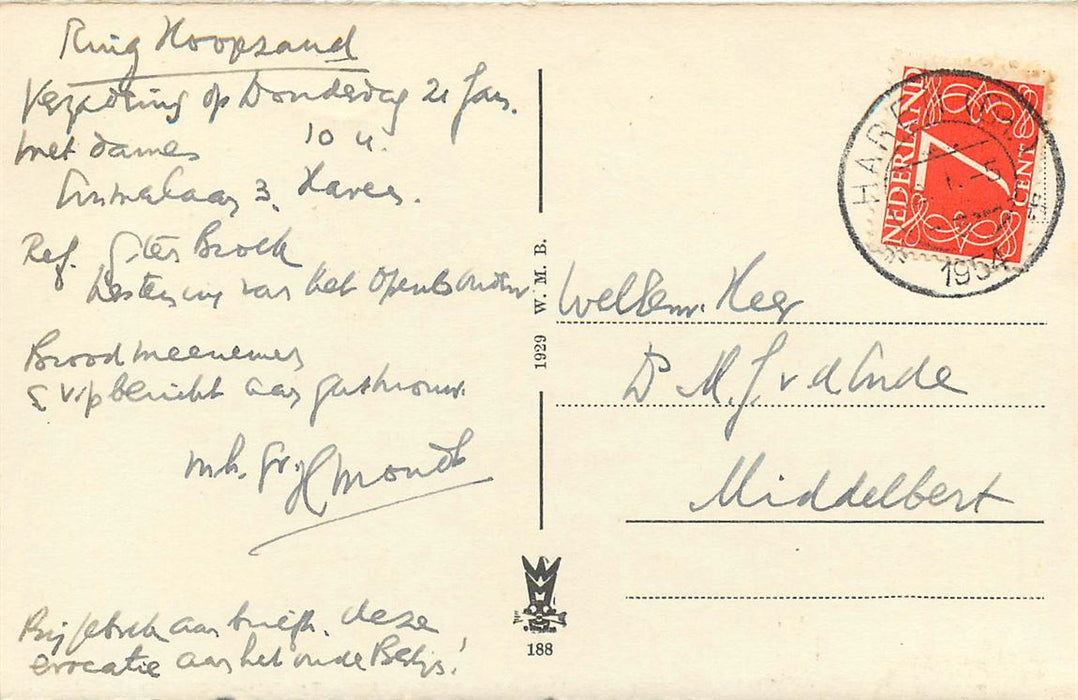 Ring Hoopzand
Vergadering op Donderdag 21 Jan.
met dames 10 u.
3, Haren.
Ref. G. ter Broek
van het Openb.
Brood meenemen
& svp bericht aan gastvrouw.
m. h. gr.
Bij gebrek aan briefk. deze
evocatie aan het oude Belg.!
1929 W. M. B.
188
NEDERLAND
7
CENT
HAREN (GR.)
1954
WelEerw. Heer
Ds M. J. v d Ende
Middelbert